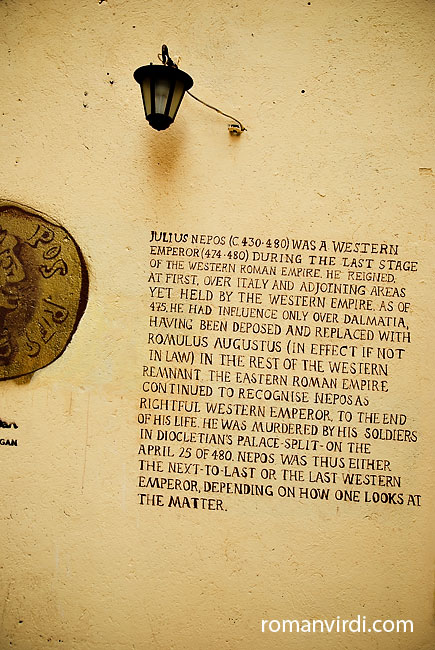 POS
REG
GAN
JULIUS NEPOS (C 430-480) WAS A WESTERN
EMPEROR (474-480) DURING THE LAST STAGE
OF THE WESTERN ROMAN EMPIRE. HE REIGNED,
AT FIRST, OVER ITALY AND ADJOINING AREAS
YET HELD BY THE WESTERN EMPIRE. AS OF
475, HE HAD INFLUENCE ONLY OVER DALMATIA,
HAVING BEEN DEPOSED AND REPLACED WITH
ROMULUS AUGUSTUS (IN EFFECT IF NOT
IN LAW) IN THE REST OF THE WESTERN
REMNANT. THE EASTERN ROMAN EMPIRE
CONTINUED TO RECOGNISE NEPOS AS
RIGHTFUL WESTERN EMPEROR, TO THE END
OF HIS LIFE. HE WAS MURDERED BY HIS SOLDIERS
IN DIOCLETIAN'S PALACE-SPLIT-ON THE
APRIL 25 OF 480. NEPOS WAS THUS EITHER
THE NEXT-TO-LAST OR THE LAST WESTERN
EMPEROR, DEPENDING ON HOW ONE LOOKS AT
THE MATTER.
romanvirdi.com